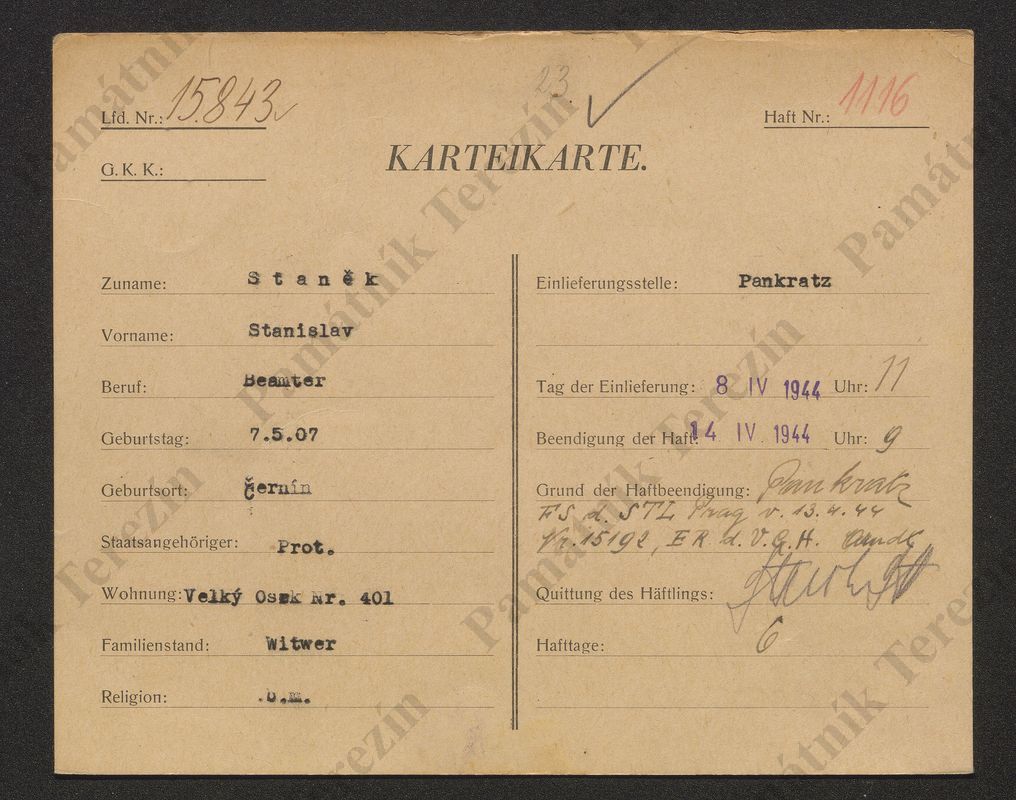 23
Lfd. Nr.: 15.843
Haft Nr.: 1116
G. K. K.:
KARTEIKARTE.
Zuname: Staněk
Vorname: Stanislav
Beruf: Beamter
Geburtstag: 7.5.07
Geburtsort: Černín
Staatsangehöriger: Prot.
Wohnung: Velký Osek Nr. 401
Familienstand: Witwer
Religion: b.m.
Einlieferungsstelle: Pankratz
Tag der Einlieferung: 8 IV 1944 Uhr: 11
Beendigung der Haft: 14 IV. 1944 Uhr: 9
Grund der Haftbeendigung: Pankratz
FS d. STL Prag v. 13.4.44
Nr. 15192, ER d. V.G.H.
Quittung des Häftlings:
Hafttage: 6
Památník Terezín